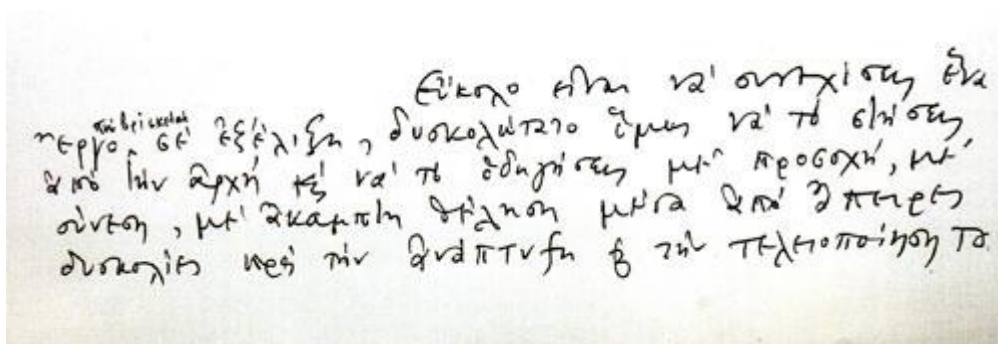 Εὔκολο εἶναι νὰ συνεχίσεις ἕνα
ἔργο ποὺ βρίσκεται σὲ ἐξέλιξη, δυσκολώτατο ὅμως νὰ τὸ στήσεις
ἀπὸ τὴν ἀρχὴ κὶ νὰ τὸ ὁδηγήσεις μὲ προσοχή, μὲ
σύνεση, μὲ ἄκαμπτη θέληση μέσα ἀπὸ ἄπειρες
δυσκολίες πρὸς τὴν ἀνάπτυξη & τὴν τελειοποίησή το